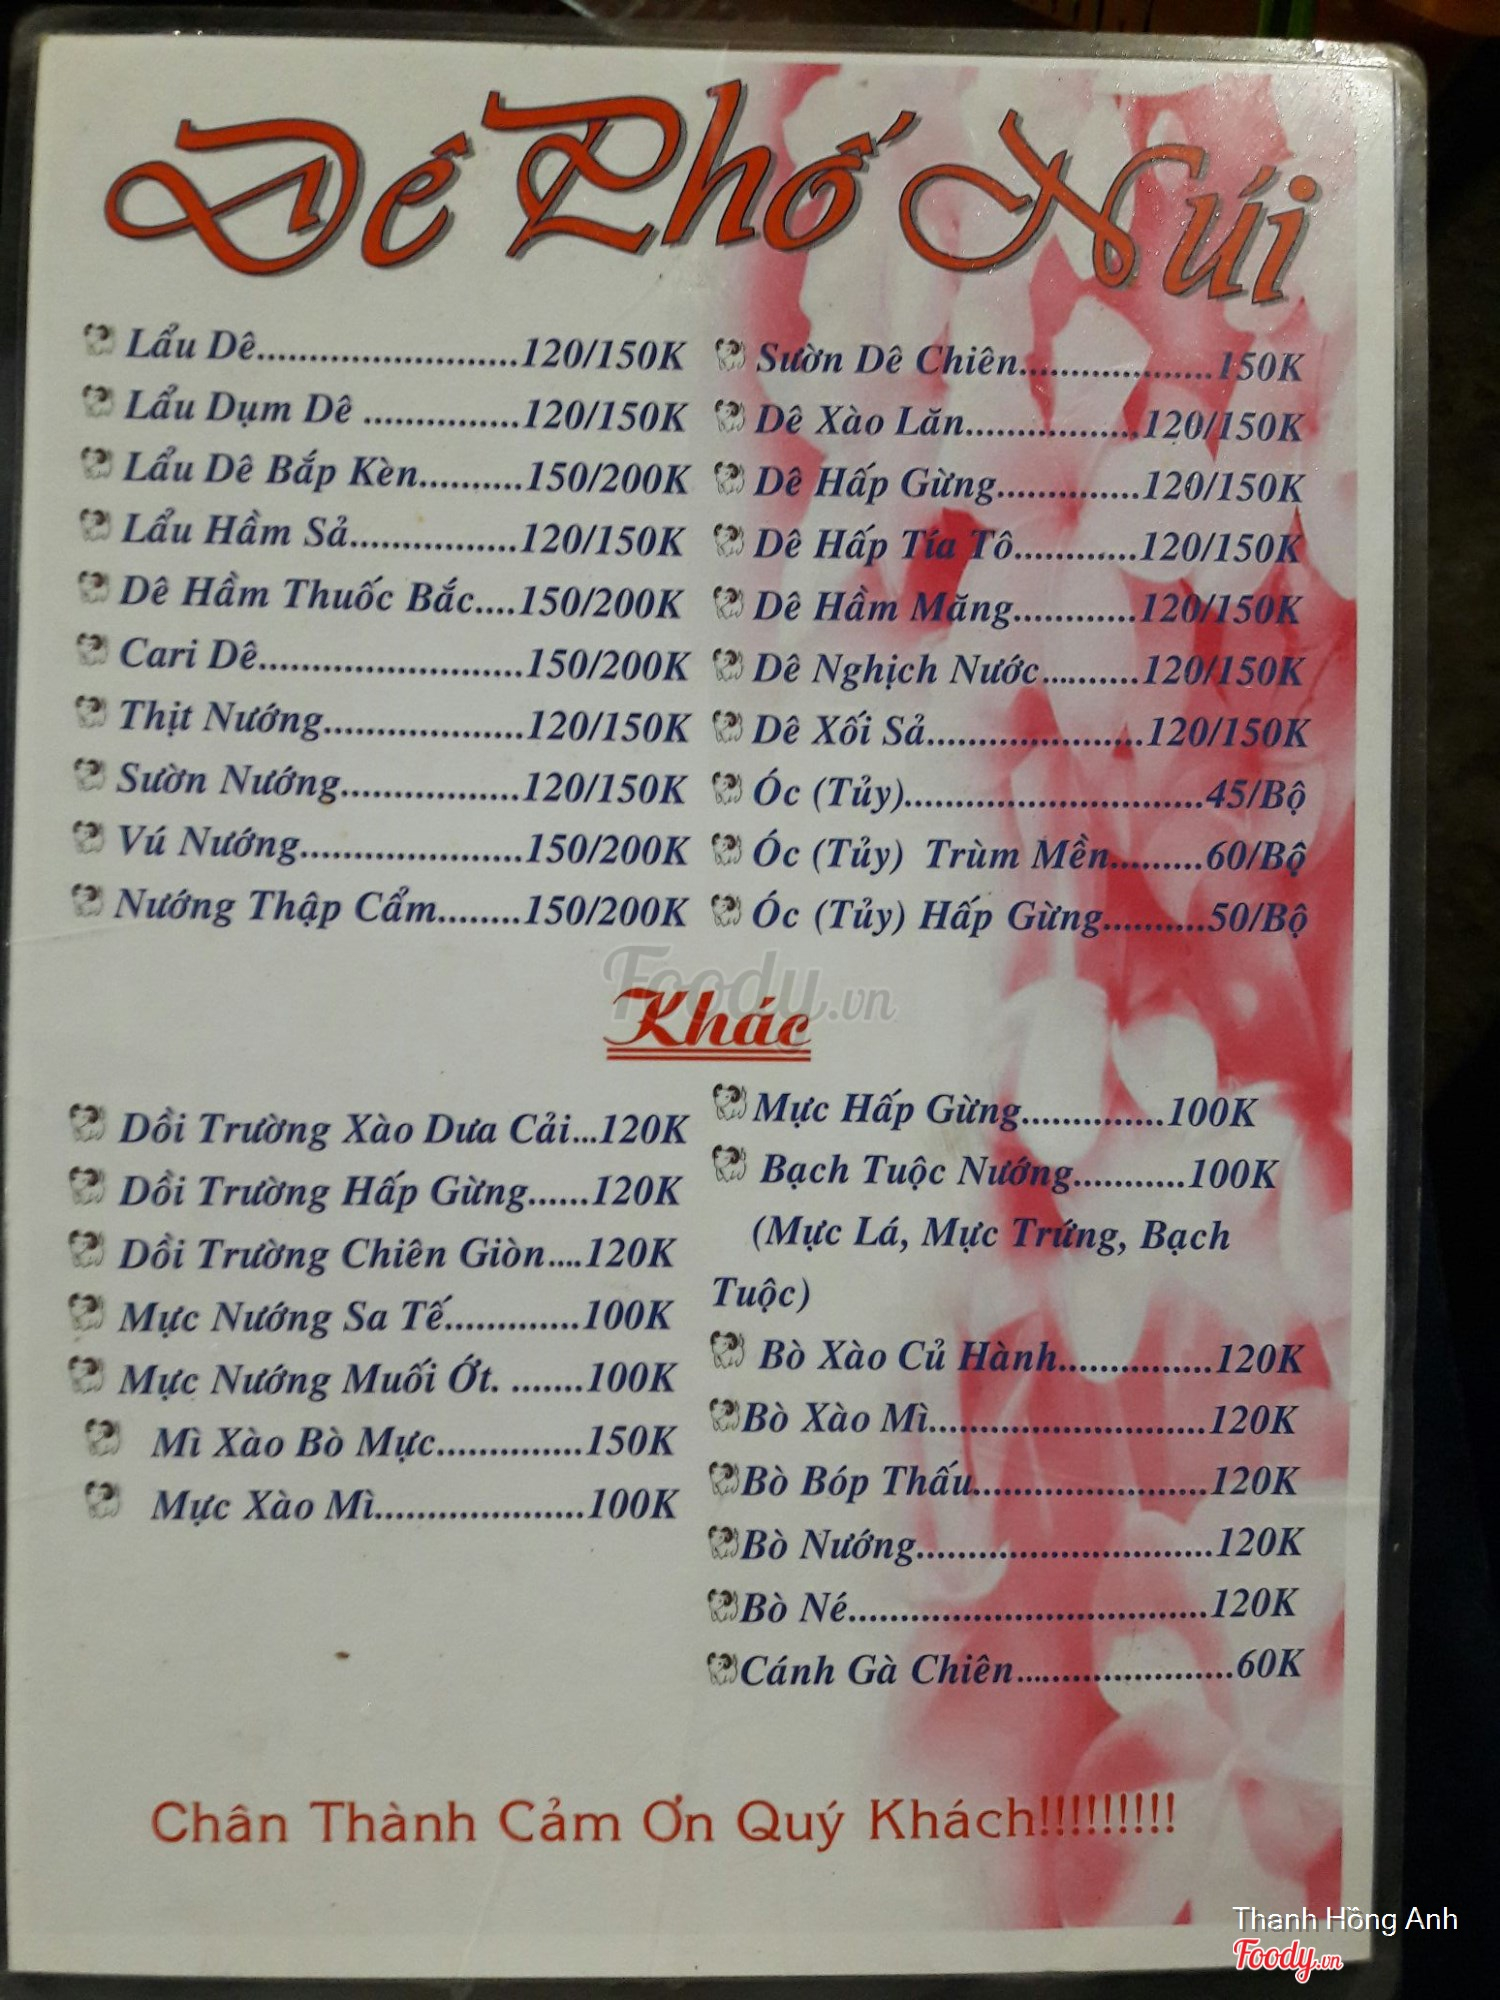 Dê Phố Núi
Lẩu Dê.........................120/150K
Lẩu Dụm Dê ...............120/150K
Lẩu Dê Bắp Kèn..........150/200K
Lẩu Hầm Sả................120/150K
Dê Hầm Thuốc Bắc....150/200K
Cari Dê.........................150/200K
Thịt Nướng...................120/150K
Sườn Nướng.................120/150K
Vú Nướng.....................150/200K
Nướng Thập Cẩm........150/200K
Sườn Dê Chiên...................150K
Dê Xào Lăn.................120/150K
Dê Hấp Gừng..............120/150K
Dê Hấp Tía Tô............120/150K
Dê Hầm Măng............120/150K
Dê Nghịch Nước..........120/150K
Dê Xối Sả.....................120/150K
Óc (Tủy).............................45/Bộ
Óc (Tủy) Trùm Mền.........60/Bộ
Óc (Tủy) Hấp Gừng..........50/Bộ
Foody.vn
Khác
Dồi Trường Xào Dưa Cải...120K
Dồi Trường Hấp Gừng......120K
Dồi Trường Chiên Giòn....120K
Mực Nướng Sa Tế.............100K
Mực Nướng Muối Ớt. .......100K
Mì Xào Bò Mực..............150K
Mực Xào Mì....................100K
Mực Hấp Gừng..............100K
Bạch Tuộc Nướng...........100K
(Mực Lá, Mực Trứng, Bạch
Tuộc)
Bò Xào Củ Hành...............120K
Bò Xào Mì..........................120K
Bò Bóp Thấu......................120K
Bò Nướng............................120K
Bò Né..................................120K
Cánh Gà Chiên.....................60K
Chân Thành Cảm Ơn Quý Khách!!!!!!!!!
Thanh Hồng Anh
Foody.vn